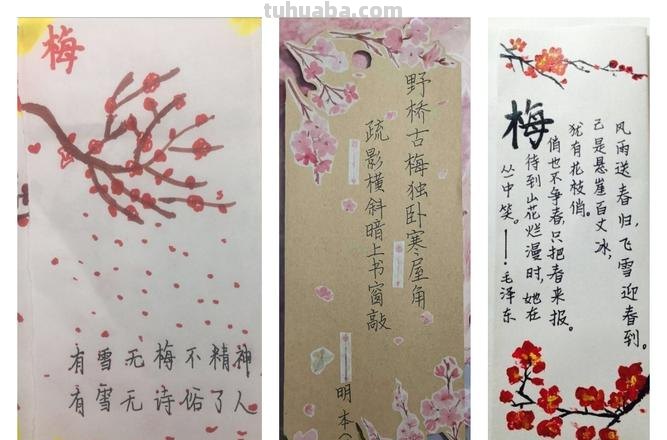 tuhuaba.com
梅
有雪无梅不精神
有雪无诗俗了人
野桥古梅独卧寒屋角
疏影横斜暗上书窗敲
明本
梅
风雨送春归，飞雪迎春到。
己是悬崖百丈冰，
犹有花枝俏。
俏也不争春，只把春来报。
待到山花烂漫时，她在
丛中笑。——毛泽东